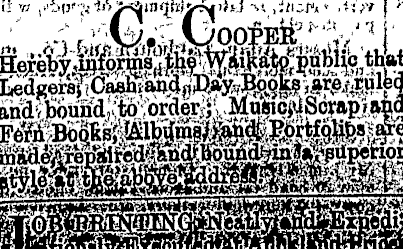 C. COOPER
Hereby informs the Waikato public that
Ledgers, Cash and Day Books are ruled
and bound to order; Music, Scrap and
Fern Books, Albums, and Portfolios are
made, repaired and bound in a superior
style at the above address.
JOB PRINTING Neatly and Expedi-